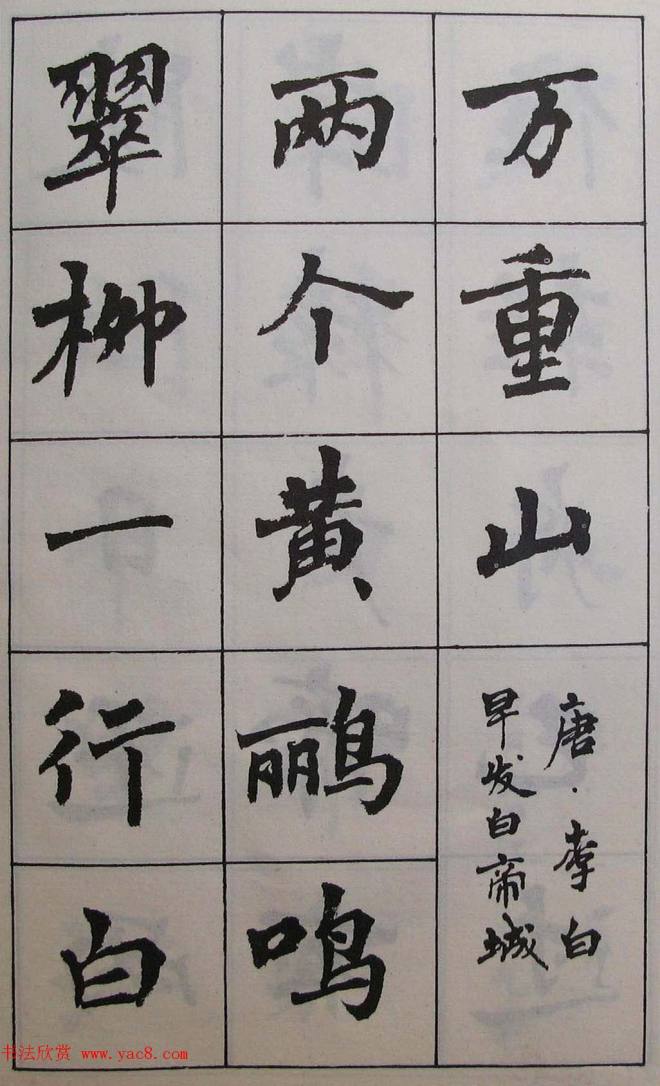 万重山
唐·李白
早发白帝城
两个黄鹂鸣
翠柳一行白
书法欣赏 www.yac8.com